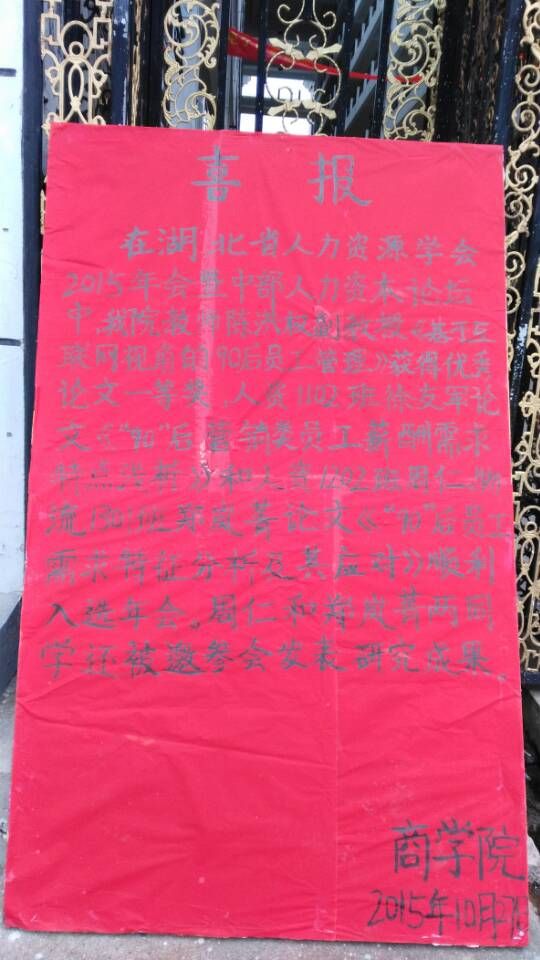 喜报
在湖北省人力资源学会
2015年会暨中部人力资本论坛
中,我院教师陈洪权副教授《基于互
联网视角的90后员工管理》获得优秀
论文一等奖,人资1102班徐友军论
文《“90”后营销类员工薪酬需求
特点浅析》和人资1202班周仁、物
流1301班郑岚菁论文《“90”后员工
需求特征分析及其应对》顺利
入选年会。周仁和郑岚菁两同
学还被邀参会发表研究成果。
商学院
2015年10月